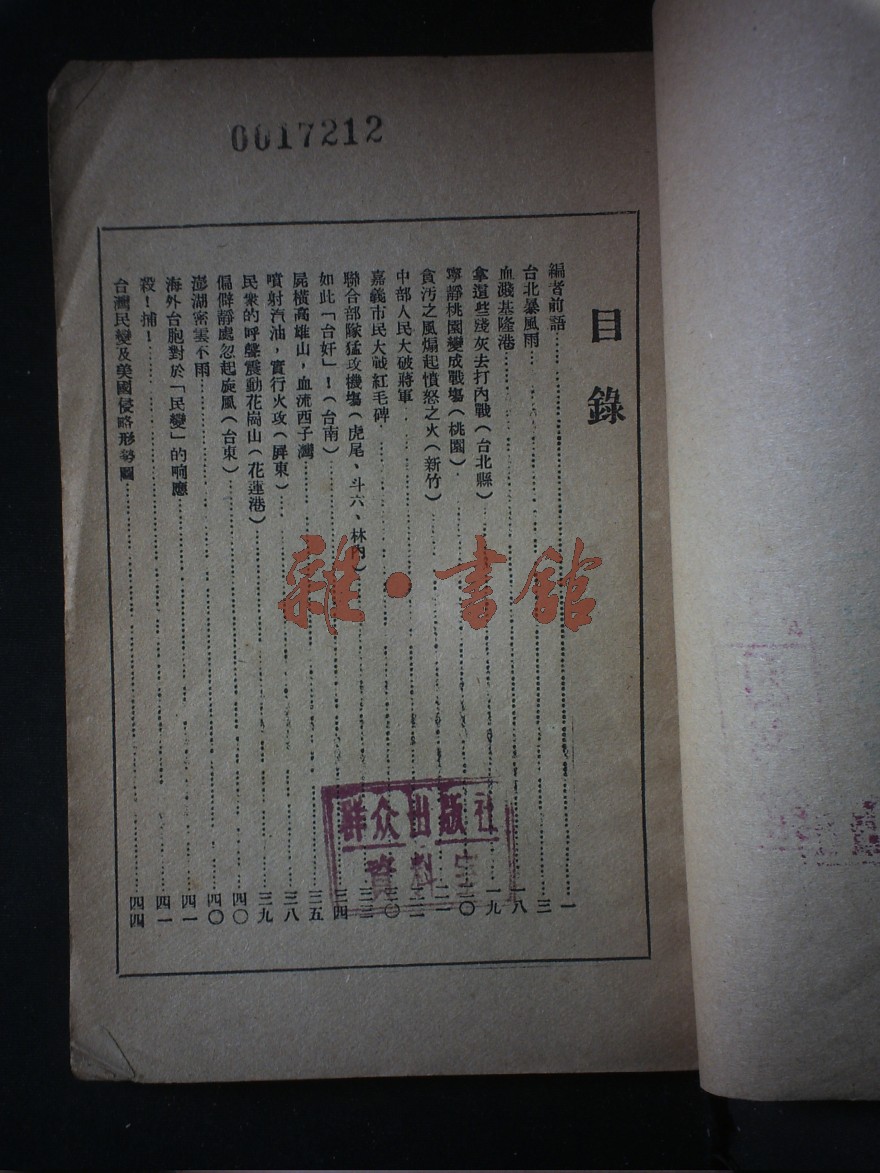 0017212
目錄
編者前語 一
台北暴風雨 三
血濺基隆港 一八
拿這些錢灰去打內戰(台北縣) 一九
寧靜桃園變成戰場(桃園) 二〇
貪汚之風煽起憤怒之火(新竹) 二一
中部人民大破蔣軍 二二
嘉義市民大戰紅毛碑 三〇
聯合部隊猛攻機場(虎尾、斗六、林內) 三三
如此「台奸」!(台南) 三四
屍橫高雄山,血流西子灣 三五
噴射汽油,實行火攻(屏東) 三八
民衆的呼聲震動花崗山(花蓮港) 三九
偏僻靜處忽起旋風(台東) 四〇
澎湖密雲不雨 四〇
海外台胞對於「民變」的响應 四一
殺!捕! 四一
台灣民變及美國侵略形勢圖 四四
雜·書館
群众出版社
資料室